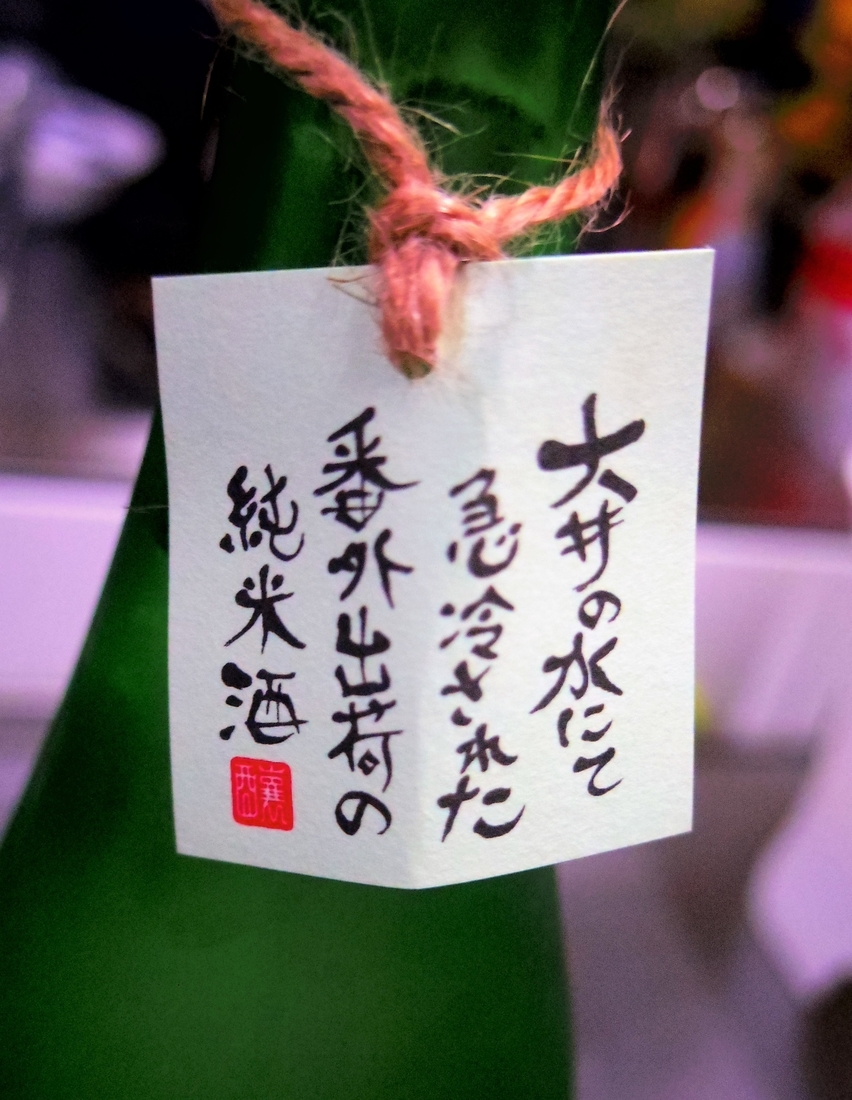 大井の水にて
急冷された
番外出荷の
純米酒
醸